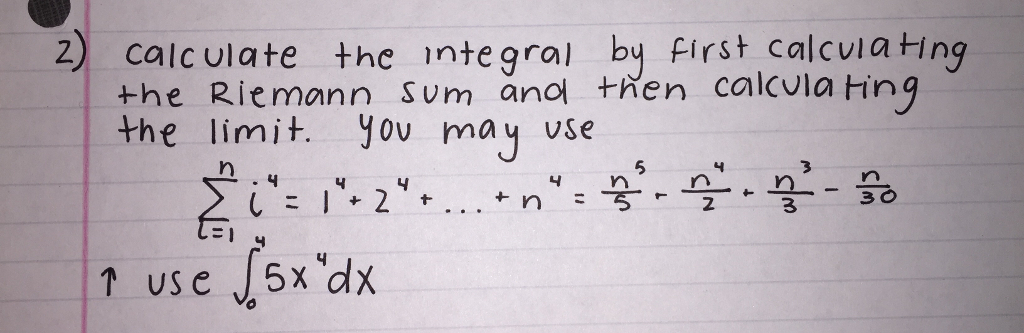 2) calculate the integral by first calculating
the Riemann sum and then calculating
the limit. you may use
n∑i=1 i⁴ = 1⁴ + 2⁴ + ... + n⁴ = n⁵/5 + n⁴/2 + n³/3 - n/30
↑ use ∫₀⁴ 5x⁴dx